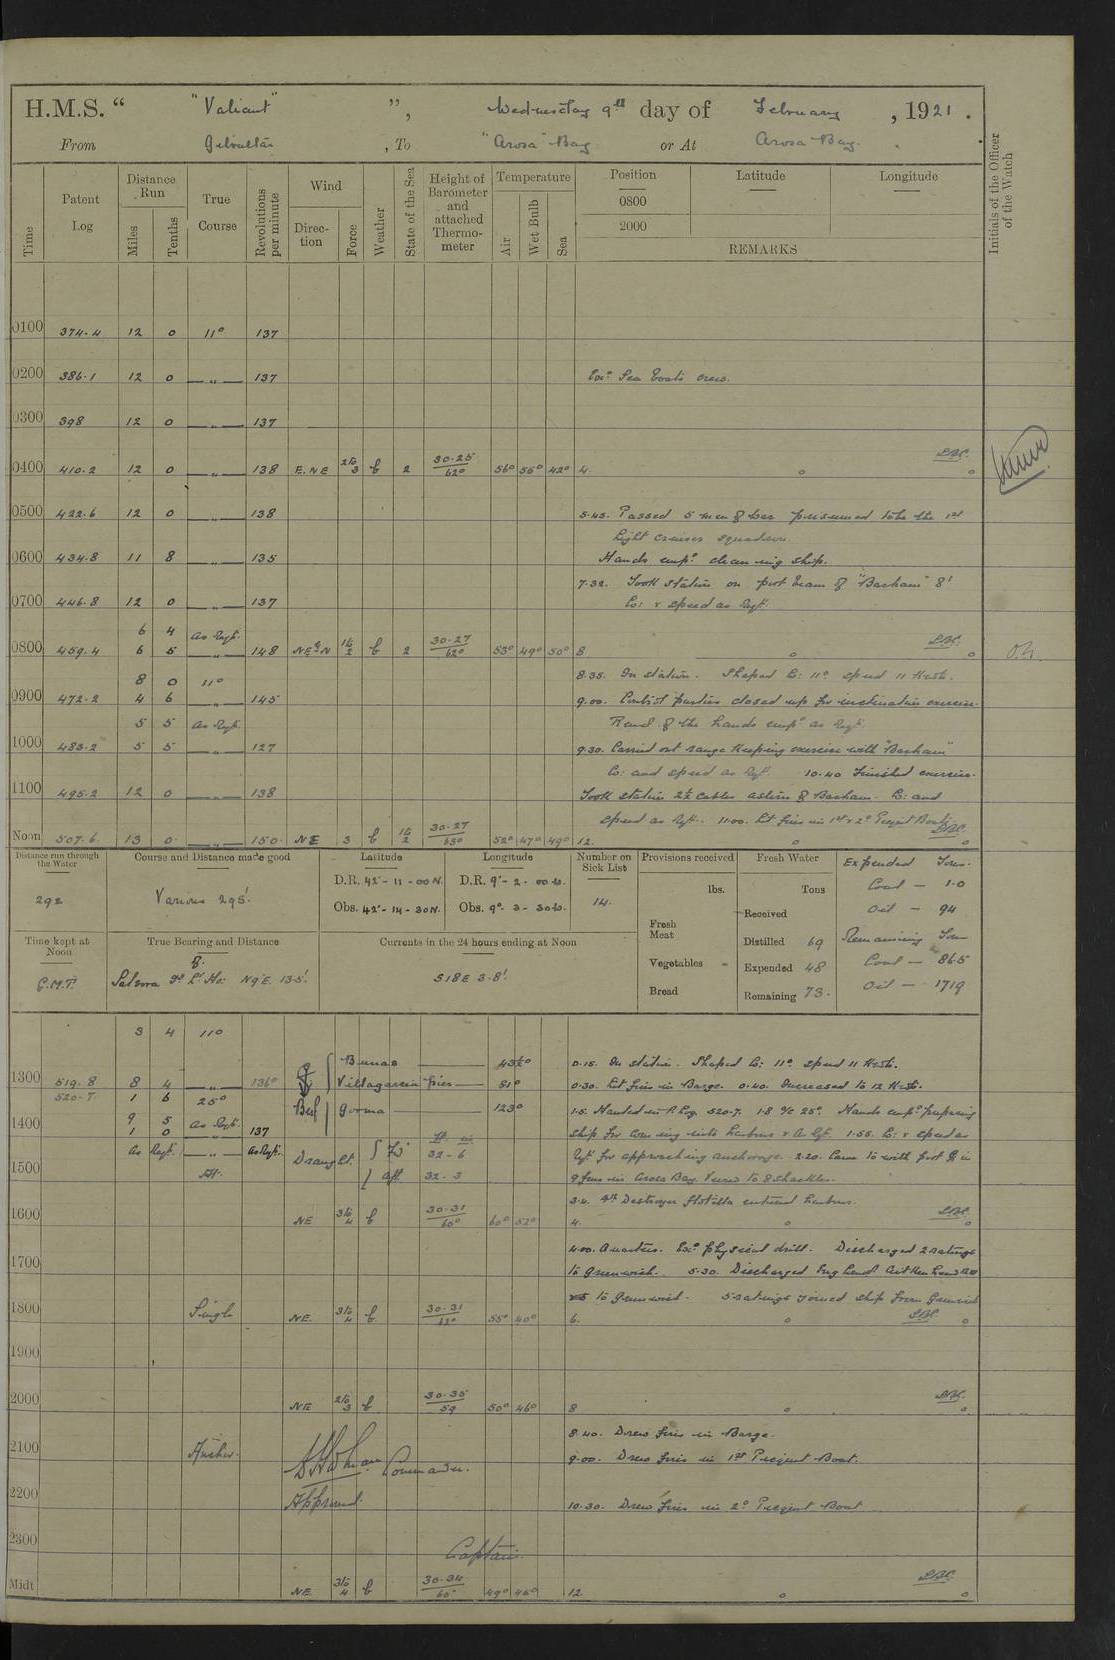 H.M.S. “ "Valiant" ”, Wednesday 9th day of February, 1921.
From Gibraltar, To "Arosa Bay or At Arosa Bay.
Time Patent Log Distance Run Miles Tenths True Course Revolutions per minute Wind Direction Force Weather State of the Sea Height of Barometer and attached Thermometer Temperature Air Wet Bulb Sea Position Latitude Longitude Initials of the Officer of the Watch
0800
2000
REMARKS
0100 374.4 12 0 11° 137
0200 386.1 12 0 —"— 137 Exd Sea boats crews.
0300 398 12 0 —"— 137
0400 410.2 12 0 —"— 138 E.NE 2 to 3 b 2 30.25 62° 56° 55° 42° 4.
0500 422.6 12 0 —"— 138 5.45. Passed 5 men of war presumed to be the 1st
Light cruiser squadron.
0600 434.8 11 8 —"— 135 Hands empd cleaning ship.
7.32. Took station on port beam of "Barham" 8'
0700 446.8 12 0 —"— 137 Co: & speed as reqt.
6 4 As Reqt.
0800 459.4 6 5 —"— 148 NE by N 1 to 2 b 2 30.27 62° 53° 49° 50° 8
8 0 11° 8.35. On station. Shaped Co: 11° speed 11 Knots.
0900 472.2 4 6 145 9.00. Control parties closed up for inclination exercise.
5 5 As Reqt. Remdr of the hands empd as reqt.
1000 483.2 5 5 —"— 127 9.30. Carried out range keeping exercise with "Barham"
Co: and speed as reqt. 10.40 Finished exercise.
1100 495.2 12 0 —"— 138 Took station 2½ cables astern of Barham. Co: and
speed as reqt. 11.00. Lit fires in 1st & 2d Picquet Boats
Noon 507.6 13 0 150. NE 3 b 1 to 2 30.27 63° 52° 47° 49° 12.
Distance run through the Water Course and Distance made good Latitude Longitude Number on Sick List Provisions received Fresh Water Expended Tons.
292 Various 295'. D.R. 42°-11-00 N. D.R. 9°-2-00 W. 14. lbs. Tons Coal — 1.0
Obs. 42°-14-30 N. Obs. 9°-3-30 W. Fresh Meat Received Oil — 94
Time kept at Noon True Bearing and Distance Currents in the 24 hours ending at Noon Distilled 69 Remaining Tons
G.M.T. Salvora Id Lt. Ho: N9E 13.5'. S18E 3.8'. Vegetables Expended 48 Coal — 865
Bread Remaining 73. Oil — 1719
3 4 11°
0.15. On station. Shaped Co: 11° speed 11 Knots.
1300 519.8 8 4 —"— 136° Villagarcia pier — 81° 0.30. Lit fires in Barge. 0.40. Increased to 12 Knots.
520.7 1 6 25° Gorma — 123° 1.5. Handed in P. Log 520.7. 1.8 a/c 25°. Hands empd preparing
1400 9 5 As Reqt.
1 0 —"— 137 ship for coming into harbour & as reqt. 1.55. Co: & speed as
As Reqt. —"— As Reqt. Draught. Fd 32-6 reqt for approaching anchorage. 2.20. Came to with port Br in
1500 At. Aft 32-3 9 fms in Arosa Bay. Veered to 8 shackles.
3.4. 4th Destroyer flotilla entered harbour.
1600 NE 3 to 4 b 30.31 60° 60° 52° 4.
4.00. Quarters. Exd physical drill. Discharged 2 ratings
1700 to Greenwich. 5.30. Discharged
to Greenwich. 5 ratings joined ship from Greenwich
1800 Single NE. 3 to 4 b 30.31 55° 40° 6.
1900
2000 NE 2 to 3 b 30.35 59 50° 46° 8
8.40. Drew fires in Barge.
2100 Anchor. Commander. 9.00. Drew fires in 1st Picquet Boat.
2200 Approved. 10.30. Drew fires in 2d Picquet Boat
2300 Captain
Midt NE. 3 to 4 b 30.34 60 49° 45° 12